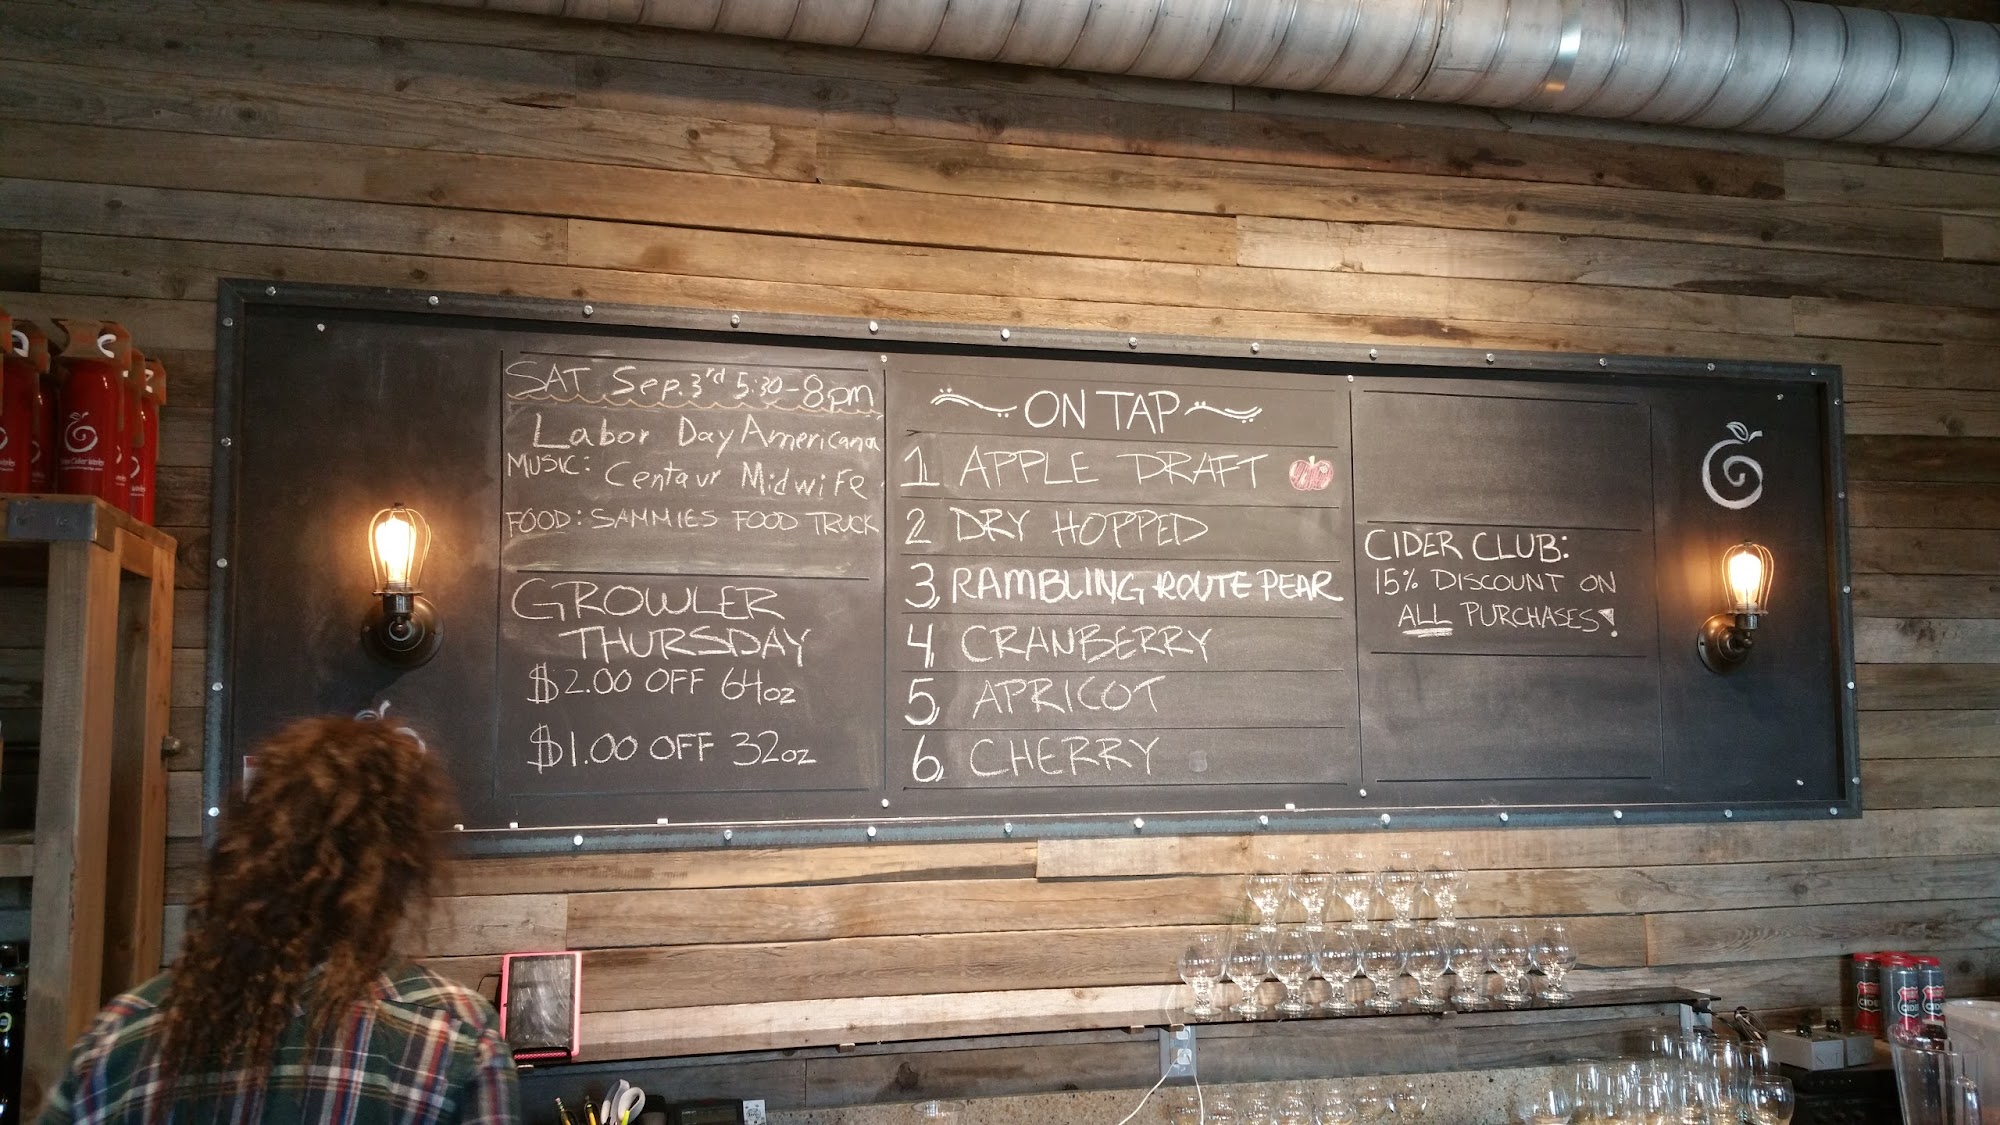 SAT Sep. 3rd 5:30-8pm
Labor Day Americana
MUSIC: Centaur Midwife
FOOD: SAMMIES FOOD TRUCK
GROWLER
THURSDAY
$2.00 OFF 64oz
$1.00 OFF 32oz
ON TAP
1 APPLE DRAFT
2 DRY HOPPED
3, RAMBLING ROUTE PEAR
4, CRANBERRY
5, APRICOT
6, CHERRY
CIDER CLUB:
15% DISCOUNT ON
ALL PURCHASES!